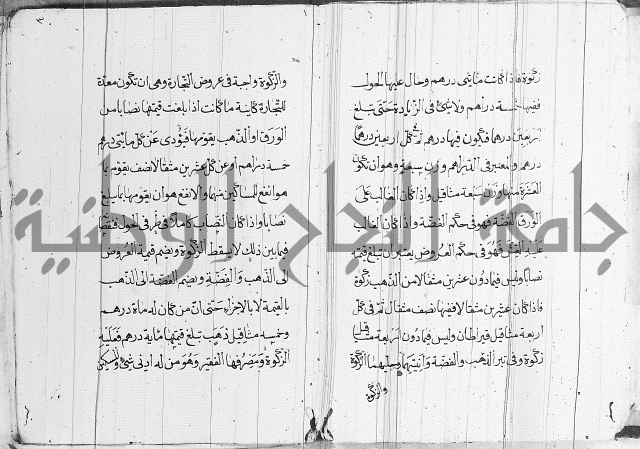 زكوة فاذا كانت مائتى درهم وحال عليها الحول
ففيها خمسة دراهم ولا شئ فى الزيادة حتى تبلغ
اربعين درهما فيكون فيها درهم ثم فى كل اربعين درهما
درهم والمعتبر فى الدراهم وزن سبعة وهو ان تكون
العشرة منها وزن سبعة مثاقيل واذا كان الغالب على
الورق الفضة فهو فى حكم الفضة واذا كان الغالب
عليه الغش فهو فى حكم العروض يعتبر ان تبلغ قيمته
نصابا وليس فيما دون عشرين مثقالا من الذهب زكوة
فاذا كان عشرين مثقالا ففيها نصف مثقال ثم فى كل
اربعة مثاقيل قيراطان وليس فيما دون اربعة مثاقيل
زكوة وفى تبر الذهب والفضة وآنيتهما وحليهما الزكوة
والزكوة
والزكوة واجبة فى عروض التجارة وهى ان تكون معدة
للتجارة كاينة ما كانت اذا بلغت قيمتها نصابا من
الورق او الذهب يقومها فيؤدى عن كل مائتى درهم
خمسة دراهم او عن كل عشرين مثقالا نصف يقوم بما
هو انفع للمساكين منهما والانفع هو ان يقومها بما يبلغ
نصابا واذا كان النصاب كاملا فى طرفى الحول فنقصانه
فيما بين ذلك لا يسقط الزكوة ويضم قيمة العروض
الى الذهب والفضة ويضم الفضة الى الذهب
بالقيمة لا بالاجزاء حتى ان من كان له ماة درهم
وخمسه مثاقيل ذهب تبلغ قيمتها مائة درهم فعليه
الزكوة ومصرفها الفقير وهو من له ادنى شئ والمسكين
جامعة النجاح الوطنية